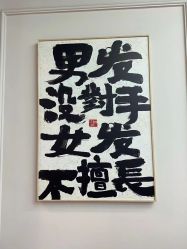 男发
没對手
女发
不擅長